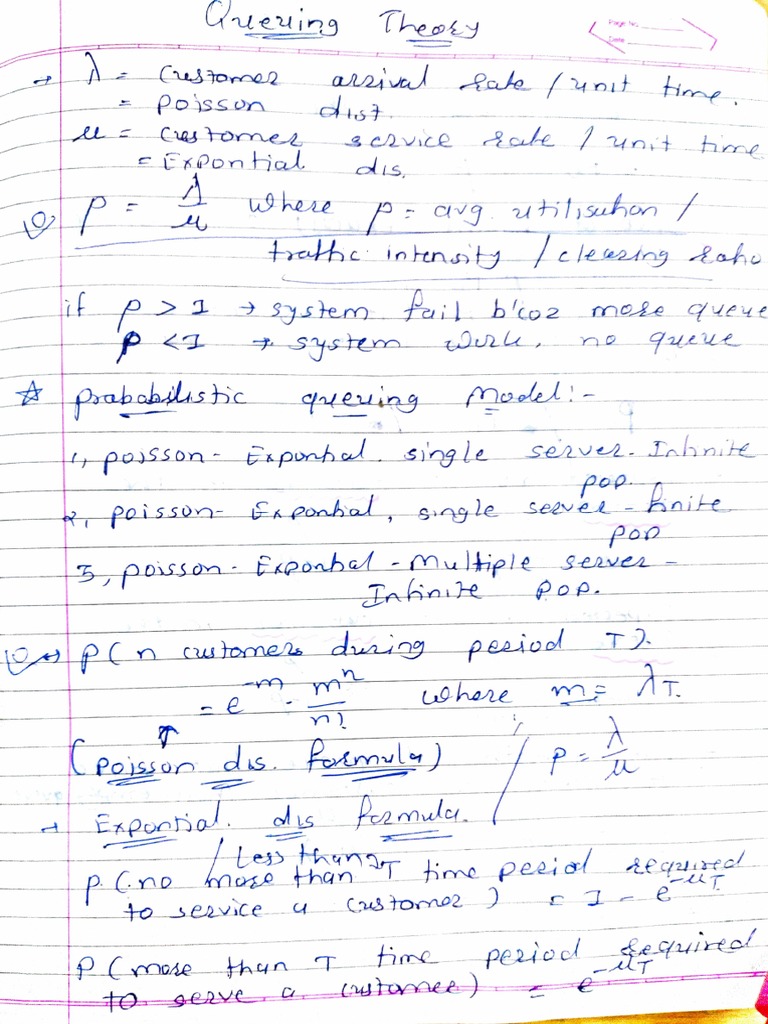 Queuing Theory
Page No.
Date
→ λ = customer arrival rate / unit time.
= poisson dist.
μ = customer service rate / unit time
= Expontial dis.
ρ = λ/μ where ρ = avg. utilisation /
traffic intensity / clearing ratio
if ρ > 1 → system fail b'coz more queue
ρ < 1 → system work, no queue
☆ probabilistic queuing Model:-
1, poisson - Expontial. single server - Infinite
pop.
2, poisson - Expontial, single server - finite
pop
3, poisson - Expontial - Multiple server -
Infinite pop.
→ P (n customers during period T).
= e^-m · m^n/n! where m = λT.
(poisson dis. formula) / ρ = λ/μ
→ Expontial. dis formula.
/ Less than T
P (no more than T time period required
to service a customer) = 1 - e^-μT.
P (more than T time period required
to serve a customer) = e^-μT